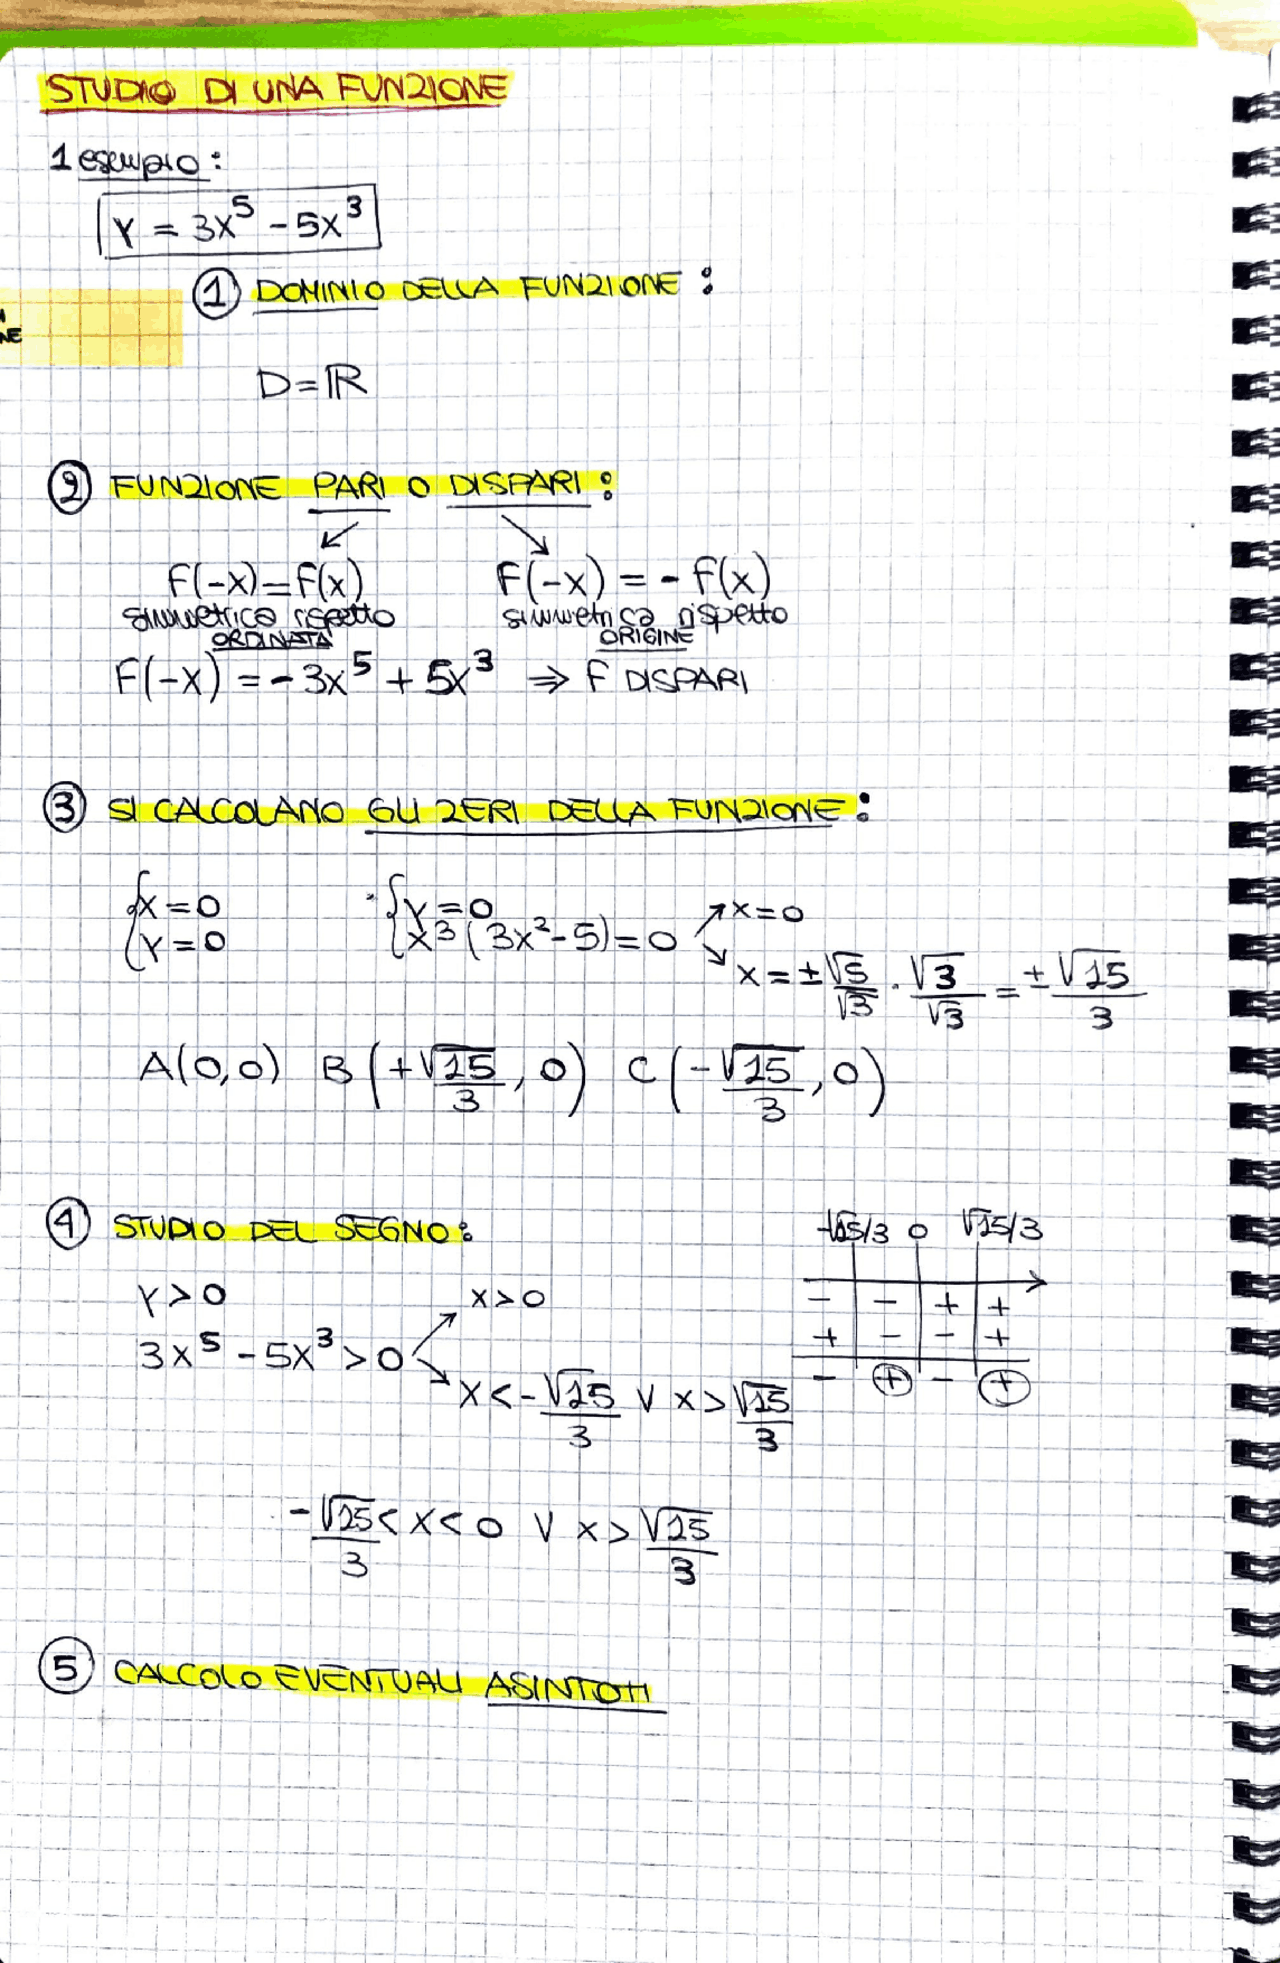 STUDIO DI UNA FUNZIONE
1 esempio:
Y = 3x⁵ - 5x³
① DOMINIO DELLA FUNZIONE:
NE
D = ℝ
② FUNZIONE PARI O DISPARI:
F(-x) = F(x) F(-x) = - F(x)
simmetrica rispetto simmetrica rispetto
ORDINATA ORIGINE
F(-x) = -3x⁵ + 5x³ ⇒ F DISPARI
③ SI CALCOLANO GLI ZERI DELLA FUNZIONE:
{x = 0 {y = 0 ↗ x = 0
{y = 0 {x³(3x²-5) = 0 ↘ x = ±√5/√3 · √3/√3 = ±√15/3
A(0,0) B(+√15/3, 0) C(-√15/3, 0)
④ STUDIO DEL SEGNO:
-√15/3 0 √15/3
Y > 0 ↗ x > 0
3x⁵ - 5x³ > 0 ↘ x < -√15/3 ∨ x > √15/3
- - + +
+ - - +
- ⊕ - ⊕
-√15/3 < x < 0 ∨ x > √15/3
⑤ CALCOLO EVENTUALI ASINTOTI